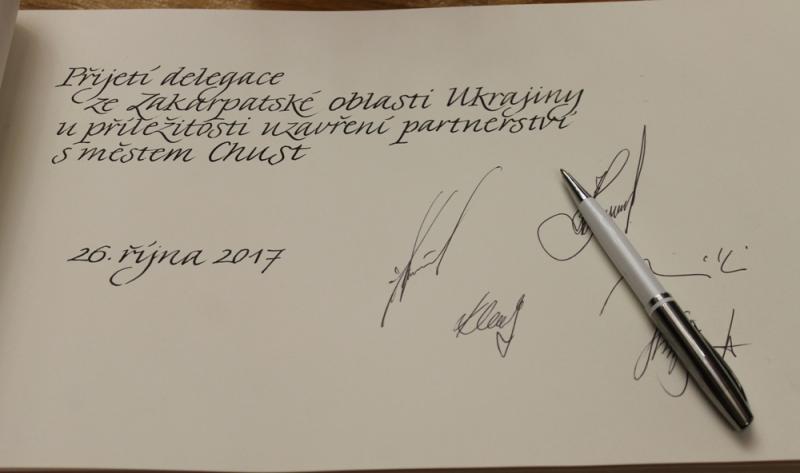 Přijetí delegace
ze Zakarpatské oblasti Ukrajiny
u příležitosti uzavření partnerství
s městem Chust
26. října 2017